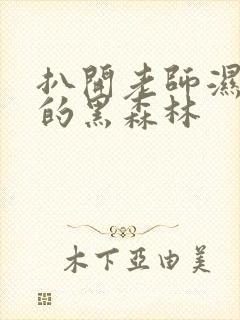 扒開老師濕
的黑森林
木下亞由美